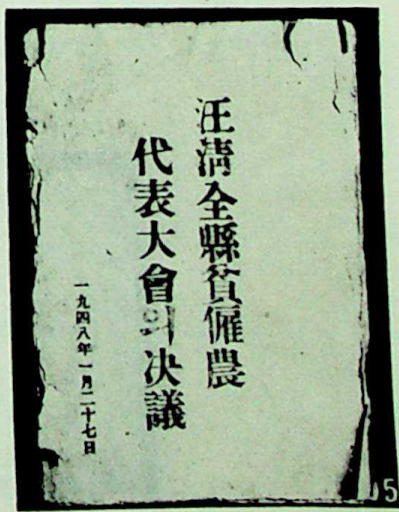 汪淸全縣貧僱農
代表大會의决議
一九四八年一月二十七日
05